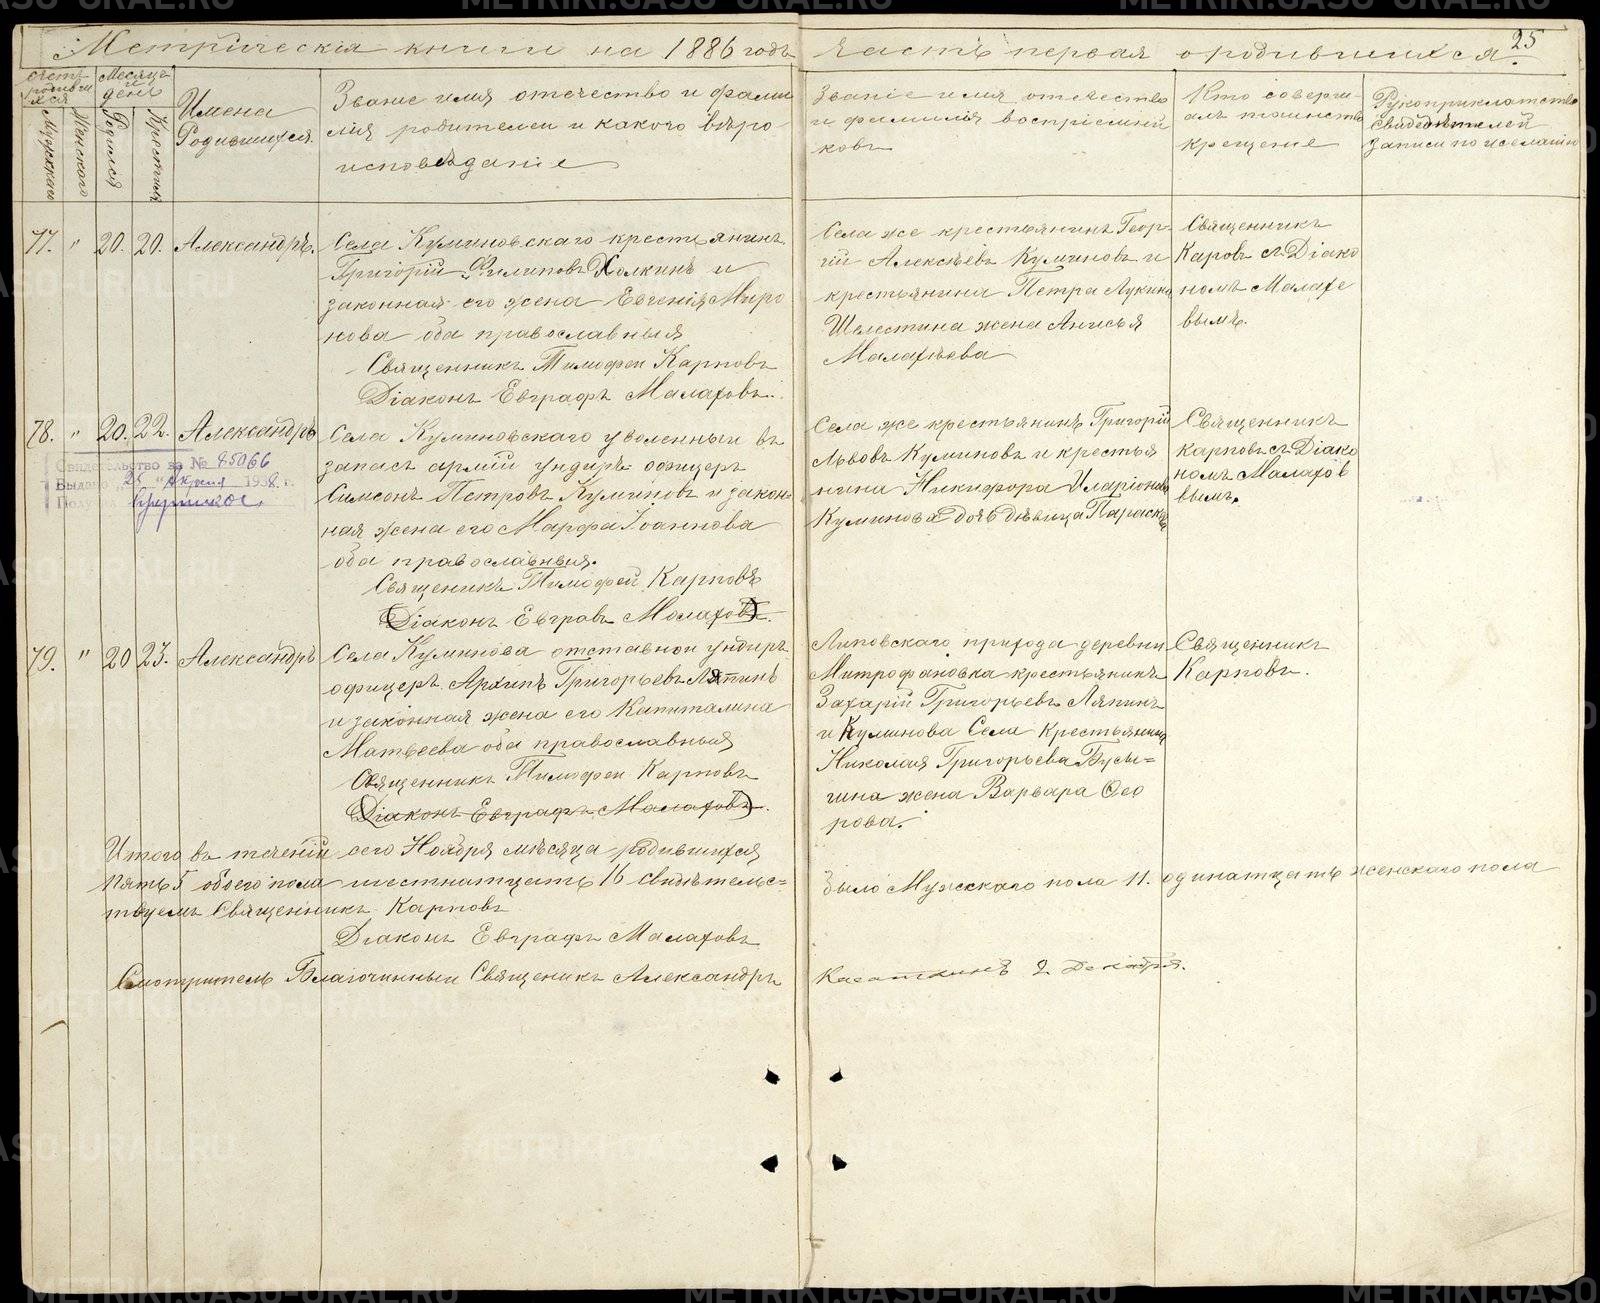 Метрическія книги на 1886 годъ
часть первая о родившихся.
25
Счетъ родивших ся
Мужскаго
Женскаго
Месяцъ и день
Родился
Крестили
Имена
Родившихся.
Званіе имя отечество и фами
лія родителеи и какого вѣро-
исповѣданіе
Званіе имя отчество
и фамилія воспріемни
ковъ
Кто соверши-
алъ таинство
крещение
Рукоприкладство
свидѣтелей
записи по желанію
77. " 20. 20. Александръ.
Села Куминовскаго крестьянинъ
Григорій Филиповъ Холкинъ и
законная его жена Евгенія Миро
нова оба православныя
Священникъ Тимофеи Карповъ
Діаконъ Евграфъ Малаховъ.
Села же крестьянинъ Геор-
гій Алексѣевъ Куминовъ и
крестьянина Петра Лукина
Шелестина жена Анисья
Малахѣева
Священникъ
Каровъ съ Діако
номъ Малахе
вымъ.
78. " 20. 22. Александръ
Свидетельство за № 85066
Выдано 25 апреля 1938 г.
Села Куминовскаго уволенныи въ
запасъ арміи ундиръ офицеръ
Симеонъ Петровъ Куминовъ и закон-
ная жена его Марфа Іоаннова
оба православныя.
Священикъ Тимофеи Карповъ
Діаконъ Евгравъ Молаховъ.
Села же крестьянинъ Григорій
Львовъ Куминовъ и крестья
нина Никифора Иларіонова
Куминова дочь дѣвица Параскева
Священникъ
Карповъ съ Діако
номъ Малахов
вымъ.
79. " 20 23. Александръ
Села Куминова отставнои ундиръ
офицеръ Архипъ Григорьевъ Ляпинъ
и законная жена его Капиталина
Матвеева оба православныя
Священникъ Тимофеи Карповъ
Діаконъ Евграфъ Малаховъ.
Липовскаго прихода деревни
Митрофановка крестьянинъ
Захарій Григорьевъ Ляпинъ
и Куминова Села Крестьянина
Николая Григорьева Бусы=
гина жена Варвара Ѳео
рова.
Священникъ
Карповъ.
Итого въ теченіи сего Ноября мѣсяца родившихся
было Мужскаго пола 11. одинатцать женскаго пола
пять 5 обоего пола шестнатцать 16 свидѣтельс=
твуемъ Священникъ Карповъ
Діаконъ Евграфъ Малаховъ
Смотритель Благочинныи Священикъ Александръ
Касаткинъ 2 Декабря.
METRIKI.GASO-URAL.RU